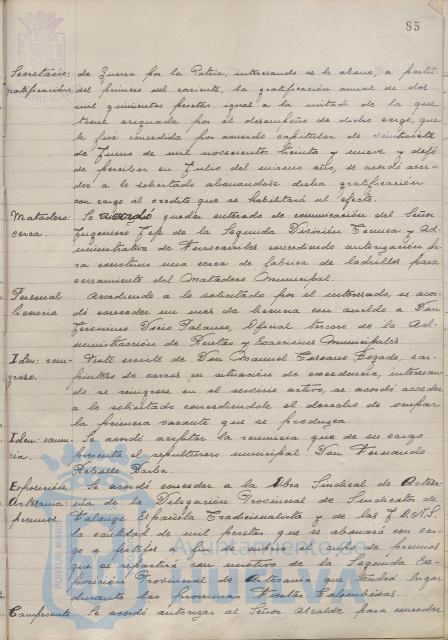 85
Secretario: de Guerra por la Patria, interesando se le abone, a partir
gratificación del primero del corriente, la gratificación anual de dos
mil quinientas pesetas igual a la mitad de la que
tiene asignada por el desempeño de dicho cargo, que
le fué concedida por acuerdo capitular de veintisiete
de Junio de mil novecientos treinta y nueve y dejó
de percibir en Julio del mismo año, se acordó acce-
der a lo solicitado abonandose dicha gratificación
con cargo al credito que se habilitará al efecto.
Matadero: Se acordó quedar enterado de comunicación del Señor
cerca. Ingeniero Jefe de la Segunda División Tecnica y Ad-
ministrativa de Ferrocarriles concediendo autorización pa-
ra construir una cerca de fabrica de ladrillos para
cerramiento del Matadero Municipal.
Personal: Accediendo a lo solicitado por el interesado, se acor-
licencia dó conceder un mes de licencia con sueldo a Don
Jeronimo Palanco, Oficial tercero de la Ad-
ministración de Rentas y Exacciones Municipales.
Idem: rein- Visto escrito de Don Manuel Toscano Bogado, car-
greso. pintero de carros en situación de excedencia, interesan-
do se reingrese en el servicio activo, se acordó acceder
a lo solicitado concediendole el derecho de ocupar
la primera vacante que se produzca
Idem: renun- Se acordó aceptar la renuncia que de su cargo
cia. presenta el sepulturero municipal Don Fernando
Rebollo Barba.
Exposición Se acordó conceder a la Obra Sindical de Artesa-
Artesana: nia de la Delegación Provincial de Sindicatos de
premios Falange Española Tradicionalista y de las J.O.N.S.
la cantidad de mil pesetas que se abonará con car-
go a festejos a fin de cubrir el cupo de premios
que se repartirá con motivo de la Segunda Ex-
posición Provincial de Artesania que tendrá lugar
durante las proximas Fiestas Colombinas.
Campamento Se acordó autorizar al Señor Alcalde para conceder
Ayuntamiento de
HUELVA